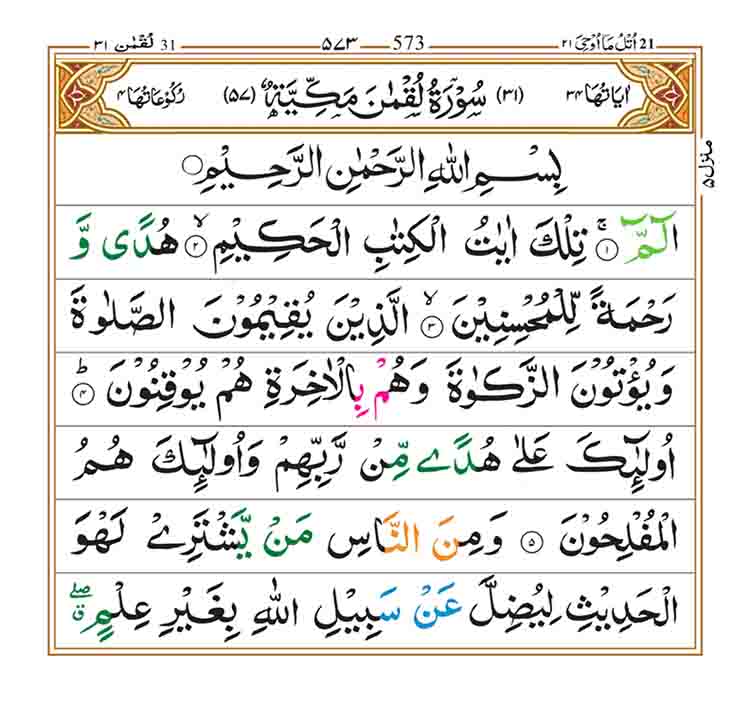 اُتْلُ مَا اُوْحِیَ ۲۱ 21 573 ۵۷۳ لُقْمٰن ۳۱ 31
اٰیَاتُهَا ۳۴ (۳۱) سُوْرَةُ لُقْمٰنَ مَكِّیَّةٌ (۵۷) رُكُوْعَاتُهَا ۴
منزل ۵
بِسْمِ اللّٰهِ الرَّحْمٰنِ الرَّحِیْمِ
الٓمّٓ ۚ۱ تِلْكَ اٰیٰتُ الْكِتٰبِ الْحَكِیْمِ ۙ۲ هُدًی وَّ
رَحْمَةً لِّلْمُحْسِنِیْنَ ۙ۳ الَّذِیْنَ یُقِیْمُوْنَ الصَّلٰوةَ
وَ یُؤْتُوْنَ الزَّكٰوةَ وَهُمْ بِالْاٰخِرَةِ هُمْ یُوْقِنُوْنَ ؕ۴
اُولٰٓئِكَ عَلٰی هُدًی مِّنْ رَّبِّهِمْ وَاُولٰٓئِكَ هُمُ
الْمُفْلِحُوْنَ ۵ وَمِنَ النَّاسِ مَنْ یَّشْتَرِیْ لَهْوَ
الْحَدِیْثِ لِیُضِلَّ عَنْ سَبِیْلِ اللّٰهِ بِغَیْرِ عِلْمٍ ۖق